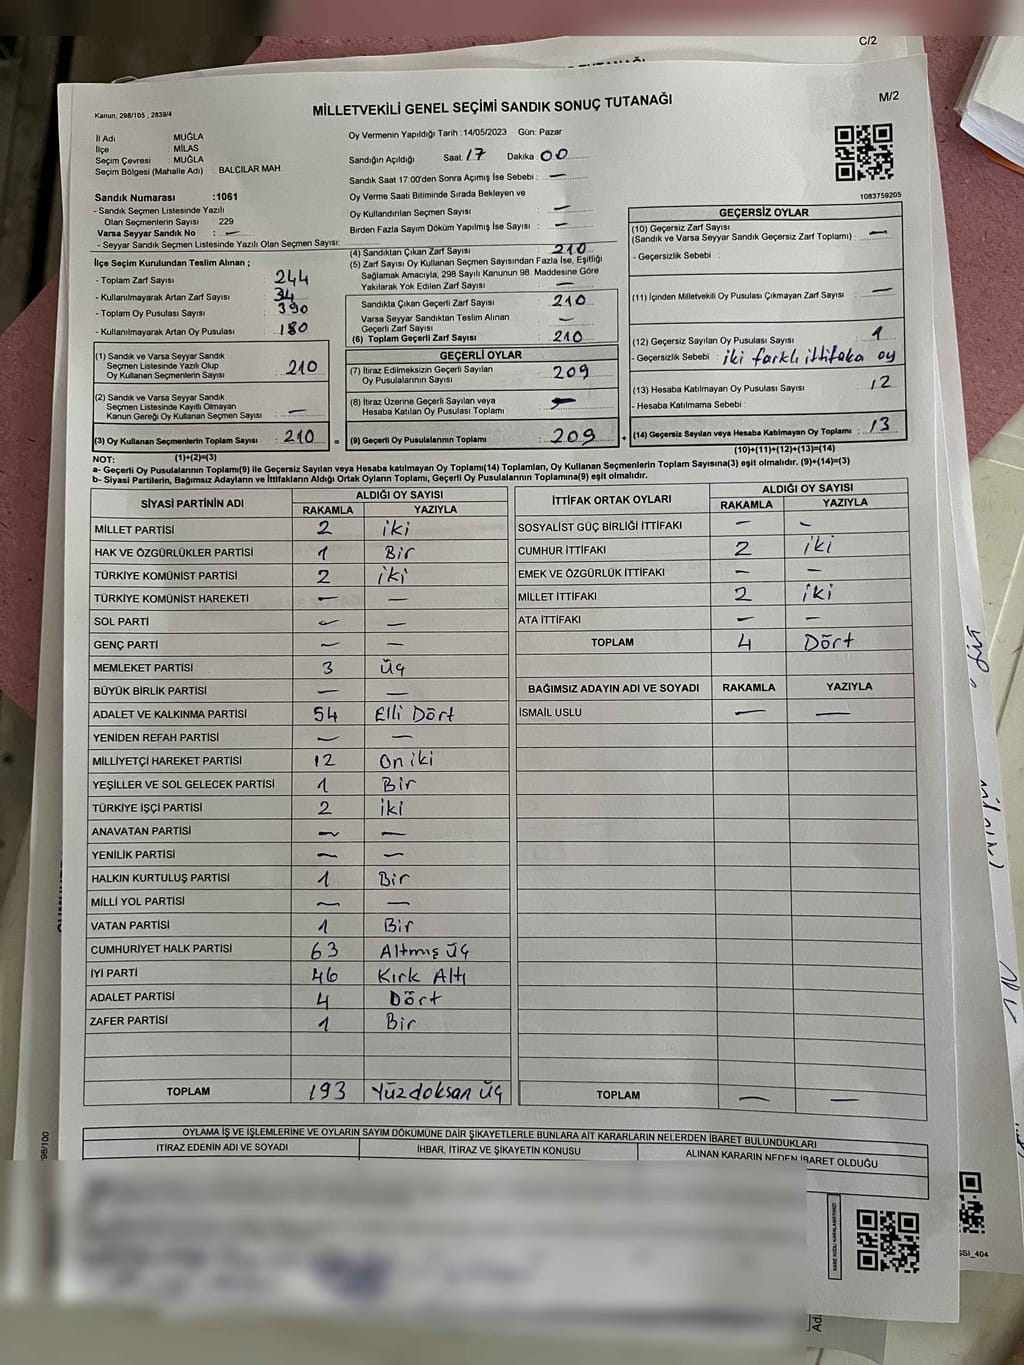 C/2
Kanun; 298/105 , 2839/4
MİLLETVEKİLİ GENEL SEÇİMİ SANDIK SONUÇ TUTANAĞI
M/2
İl Adı : MUĞLA
İlçe : MİLAS
Seçim Çevresi : MUĞLA
Seçim Bölgesi (Mahalle Adı) : BALCILAR MAH
Oy Vermenin Yapıldığı Tarih : 14/05/2023 Gün: Pazar
Sandığın Açıldığı Saat: 17 Dakika: 00
Sandık Saat 17:00'den Sonra Açımış İse Sebebi : —
Oy Verme Saati Bitiminde Sırada Bekleyen ve
Oy Kullandırılan Seçmen Sayısı —
Birden Fazla Sayım Döküm Yapılmış İse Sayısı : —
1083759205
Sandık Numarası :1061
- Sandık Seçmen Listesinde Yazılı
Olan Seçmenlerin Sayısı : 229
Varsa Seyyar Sandık No : —
- Seyyar Sandık Seçmen Listesinde Yazılı Olan Seçmen Sayısı:
İlçe Seçim Kurulundan Teslim Alınan ;
- Toplam Zarf Sayısı : 244
- Kullanılmayarak Artan Zarf Sayısı : 34
- Toplam Oy Pusulası : 390
- Kullanılmayarak Artan Oy Pusulası : 180
(1) Sandık ve Varsa Seyyar Sandık
Seçmen Listesinde Yazılı Olup
Oy Kullanan Seçmenlerin Sayısı : 210
(2) Sandık ve Varsa Seyyar Sandık
Seçmen Listesinde Kayıtlı Olmayan
Kanun Gereği Oy Kullanan Seçmen Sayısı : —
(3) Oy Kullanan Seçmenlerin Toplam Sayısı : 210 =
(1)+(2)=(3)
(4) Sandıktan Çıkan Zarf Sayısı : 210
(5) Zarf Sayısı Oy Kullanan Seçmen Sayısından Fazla İse, Eşitliği
Sağlamak Amacıyla, 298 Sayılı Kanunun 98. Maddesine Göre
Yakılarak Yok Edilen Zarf Sayısı : —
Sandıkta Çıkan Geçerli Zarf Sayısı : 210
Varsa Seyyar Sandıktan Teslim Alınan
Geçerli Zarf Sayısı : —
(6) Toplam Geçerli Zarf Sayısı : 210
GEÇERLİ OYLAR
(7) İtiraz Edilmeksizin Geçerli Sayılan
Oy Pusulalarının Sayısı : 209
(8) İtiraz Üzerine Geçerli Sayılan veya
Hesaba Katılan Oy Pusulası Toplamı : —
(9) Geçerli Oy Pusulalarının Toplamı : 209 +
GEÇERSİZ OYLAR
(10) Geçersiz Zarf Sayısı
(Sandık ve Varsa Seyyar Sandık Geçersiz Zarf Toplamı) : —
- Geçersizlik Sebebi :
(11) İçinden Milletvekili Oy Pusulası Çıkmayan Zarf Sayısı : —
(12) Geçersiz Sayılan Oy Pusulası Sayısı : 1
- Geçersizlik Sebebi : iki farklı ittifaka oy
(13) Hesaba Katılmayan Oy Pusulası Sayısı : 12
- Hesaba Katılmama Sebebi :
(14) Geçersiz Sayılan veya Hesaba Katılmayan Oy Toplamı : 13
(10)+(11)+(12)+(13)=(14)
NOT:
a- Geçerli Oy Pusulalarının Toplamı(9) ile Geçersiz Sayılan veya Hesaba katılmayan Oy Toplamı(14) Toplamları, Oy Kullanan Seçmenlerin Toplam Sayısına(3) eşit olmalıdır. (9)+(14)=(3)
b- Siyasi Partilerin, Bağımsız Adayların ve İttifakların Aldığı Ortak Oyların Toplamı, Geçerli Oy Pusulalarının Toplamına(9) eşit olmalıdır.
SİYASİ PARTİNİN ADI ALDIĞI OY SAYISI
RAKAMLA YAZIYLA
MİLLET PARTİSİ 2 iki
HAK VE ÖZGÜRLÜKLER PARTİSİ 1 Bir
TÜRKİYE KOMÜNİST PARTİSİ 2 iki
TÜRKİYE KOMÜNİST HAREKETİ — —
SOL PARTİ — —
GENÇ PARTİ — —
MEMLEKET PARTİSİ 3 Üç
BÜYÜK BİRLİK PARTİSİ — —
ADALET VE KALKINMA PARTİSİ 54 Elli Dört
YENİDEN REFAH PARTİSİ — —
MİLLİYETÇİ HAREKET PARTİSİ 12 On iki
YEŞİLLER VE SOL GELECEK PARTİSİ 1 Bir
TÜRKİYE İŞÇİ PARTİSİ 2 iki
ANAVATAN PARTİSİ — —
YENİLİK PARTİSİ — —
HALKIN KURTULUŞ PARTİSİ 1 Bir
MİLLİ YOL PARTİSİ — —
VATAN PARTİSİ 1 Bir
CUMHURİYET HALK PARTİSİ 63 Altmış üç
İYİ PARTİ 46 Kırk Altı
ADALET PARTİSİ 4 Dört
ZAFER PARTİSİ 1 Bir
TOPLAM 193 Yüzdoksan üç
İTTİFAK ORTAK OYLARI ALDIĞI OY SAYISI
RAKAMLA YAZIYLA
SOSYALİST GÜÇ BİRLİĞİ İTTİFAKI — —
CUMHUR İTTİFAKI 2 iki
EMEK VE ÖZGÜRLÜK İTTİFAKI — —
MİLLET İTTİFAKI 2 iki
ATA İTTİFAKI — —
TOPLAM 4 Dört
BAĞIMSIZ ADAYIN ADI VE SOYADI RAKAMLA YAZIYLA
İSMAİL USLU — —
TOPLAM — —
OYLAMA İŞ VE İŞLEMLERİNE VE OYLARIN SAYIM DÖKÜMÜNE DAİR ŞİKAYETLERLE BUNLARA AİT KARARLARIN NELERDEN İBARET BULUNDUKLARI
İTİRAZ EDENİN ADI VE SOYADI İHBAR, İTİRAZ VE ŞİKAYETİN KONUSU ALINAN KARARIN NEDEN İBARET OLDUĞU
98/100
SSI_404